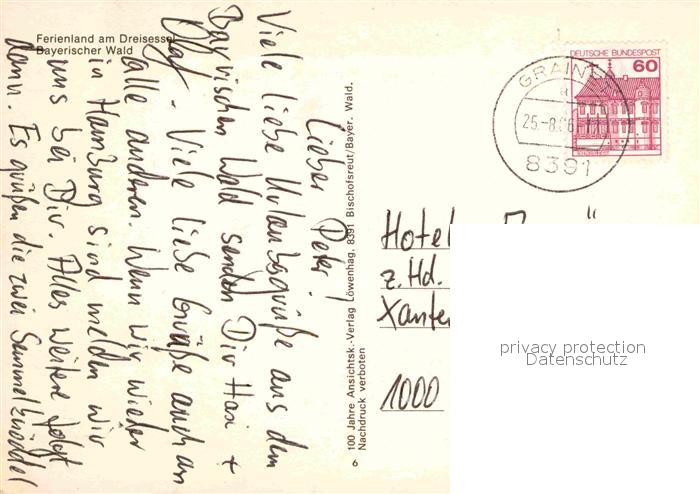 Ferienland am Dreisessel
Bayerischer Wald
Lieber Peter!
Viele liebe Urlaubsgrüße aus dem
Bayrischen Wald senden Dir Hasi +
Olaf. Viele liebe Grüße auch an
alle anderen. Wenn wir wieder
in Hamburg sind melden wir
uns bei Dir. Alles weitere folgt
dann. Es grüßen die zwei Semmelknödel
100 Jahre Ansichtsk.-Verlag Löwenhag, 8391 Bischofsreut/Bayer. Wald.
Nachdruck verboten
6
DEUTSCHE BUNDESPOST
60
GRAINET
a
25.-8.86
8391
Hotel
z. Hd.
Xanten
1000
privacy protection
Datenschutz